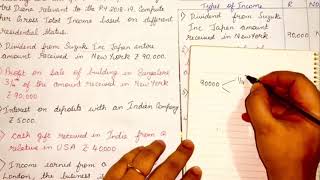 Mrs Diana relevant to the PY 2018-19. Compute
her Gross Total Income based on different
Residential Status.
Dividend from Suzuki Inc Japan
amount received in New York ₹ 90,000
Profit on sale of building in Bangalore
3/4th of the amount received in New York
₹ 90,000
Interest on deposits with an Indian Company
₹ 5000
Cash gift received in India from a
relative in USA ₹ 40000
Income earned from a
London, the business is
Type of Income
R
NO
Dividend from Suzuki
Inc Japan amount
received in New York
90,000
90000
1/4